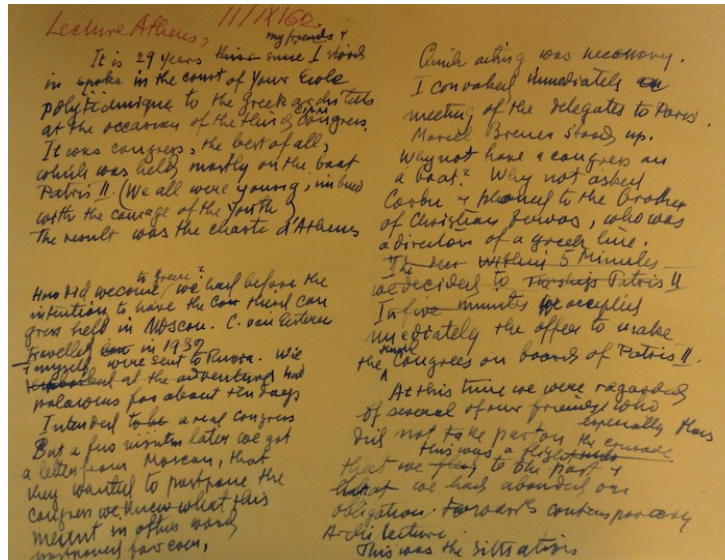 Lecture Athens, 11/IX 62.
my friends &
It is 29 years this since I stood
in spoke in the court of your Ecole
polytechnique to the greek architects
at the occasion of the third Congress.
CIAM
It was congress, the best of all,
which was held mostly on the boat
Patris II. (We all were young, imbued
with the courage of the youth)
The result was the charte d'Athens
to greece?
How did we come, we had before the
intention to have the Con third con
gress held in Moscou. C. van Eesteren
& myself were sent to Russia. We
travelled in 1932
at the adventure had
for about ten days
Intended to be a real congress
But a few months later we got
a letter from Moscou, that
they wanted to postpone the
congress we knew what this
meant in other words
postponed for ever,
Quick acting was necessary.
I convoked immediately a
meeting of the delegates to Paris.
Marcel Breuer stood up.
Why not have a congress on
a boat? Why not asked
Corbu & phoned to the brother
of Christian Zervos, who was
a director of a greek line.
The Within 5 Minutes
we decided to Patris II
In five minutes We accepted
immediately the offer to make
the Congress on board of Patris II.
At this time we were regarded
of several of our friends who
especially those
did not take part on the crusade
this was a flight
that we to the past &
that we had our
obligation towards contemporary
Architecture.
This was the situation